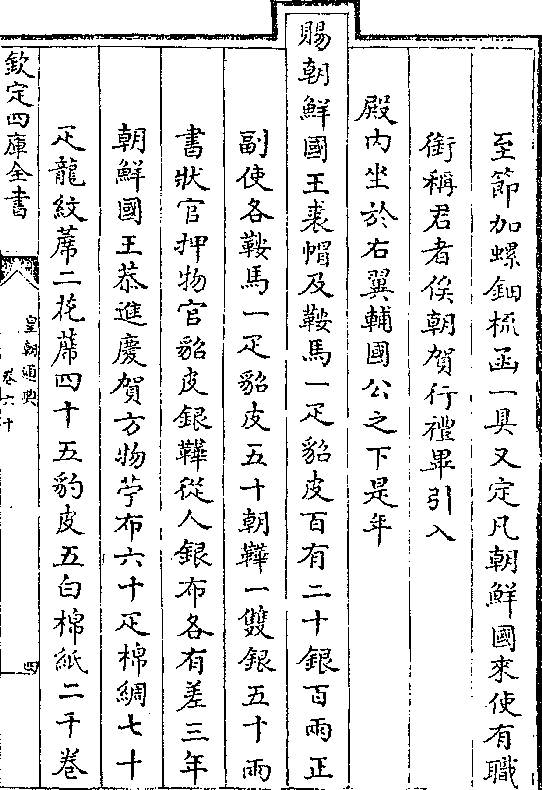 至節加螺鈿梳函一具又定凡朝鮮國來使有職
銜稱君者俟朝賀行禮畢引入
殿内坐於右翼輔國公之下是年
賜朝鮮國王裘帽及鞍馬一疋貂皮百有二十銀百兩正
副使各鞍馬一疋貂皮五十朝鞾一雙銀五十兩
書狀官押物官貂皮銀鞾從人銀布各有差三年
朝鮮國王恭進慶賀方物苧布六十疋棉綢七十
疋龍紋蓆二花蓆四十五豹皮五白棉紙二千卷
欽定四庫全書
皇朝通典
卷六十
四